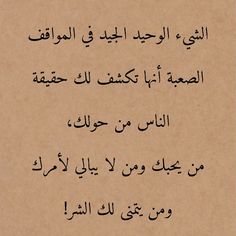 الشيء الوحيد الجيد في المواقف
الصعبة أنها تكشف لك حقيقة
الناس من حولك،
من يحبك ومن لا يبالي لأمرك
ومن يتمنى لك الشر!